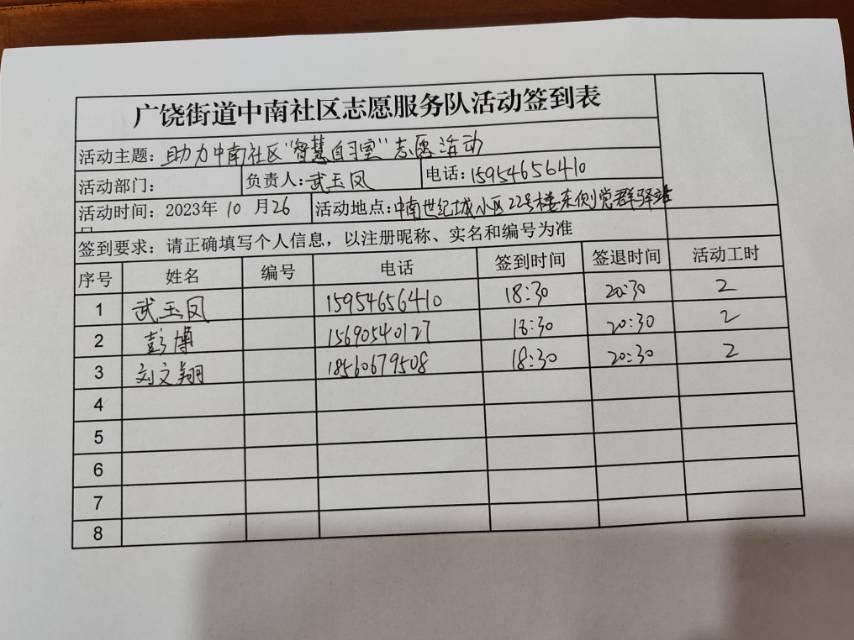 广饶街道中南社区志愿服务队活动签到表
活动主题：助力中南社区“智慧自习室”志愿活动
活动部门： 负责人：武玉凤 电话：15954656410
活动时间：2023年10月26 活动地点：中南世纪城小区22号楼东侧党群驿站
日
签到要求：请正确填写个人信息，以注册昵称、实名和编号为准
序号 姓名 编号 电话 签到时间 签退时间 活动工时
1 武玉凤 15954656410 18:30 20:30 2
2 彭博 15690540127 18:30 20:30 2
3 刘文翔 18560679508 18:30 20:30 2
4
5
6
7
8